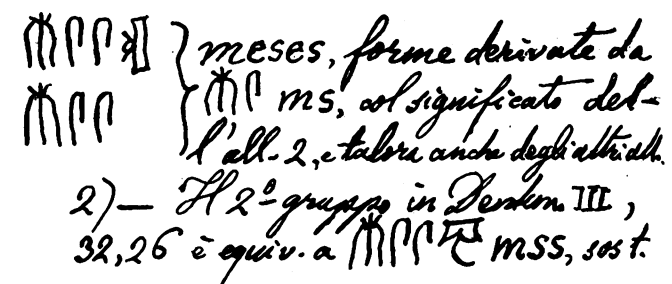 𓄟𓋴𓋴 } meses, forme derivate da
𓄟𓋴𓋴 𓄟𓋴 ms, col significato del-
l'all. 2, e talora anche degli altri all.
2)— Il 2º gruppo in Denkm. III,
32,26 è equiv. a 𓄟𓋴𓋴 mss, sost.